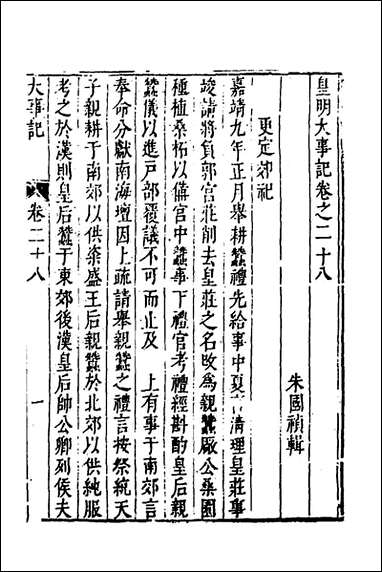 皇明大事記卷之二十八
朱國禎輯
更定郊祀
嘉靖九年正月舉耕蠶禮先給事中夏言清理皇莊事
竣請將負郭官莊削去皇莊之名改為親蠶厰公桑園
種植桑柘以備宮中蠶事下禮官考禮經斟酌皇后親
蠶儀以進戸部覆議不可而止及　上有事于南郊言
奉命分獻南海壇因上疏請舉親蠶之禮言按祭統天
子親耕于南郊以供粢盛王后親蠶於北郊以供純服
考之於漢則皇后蠶于東郊後漢皇后帥公卿列侯夫
大事記
卷二十八
一